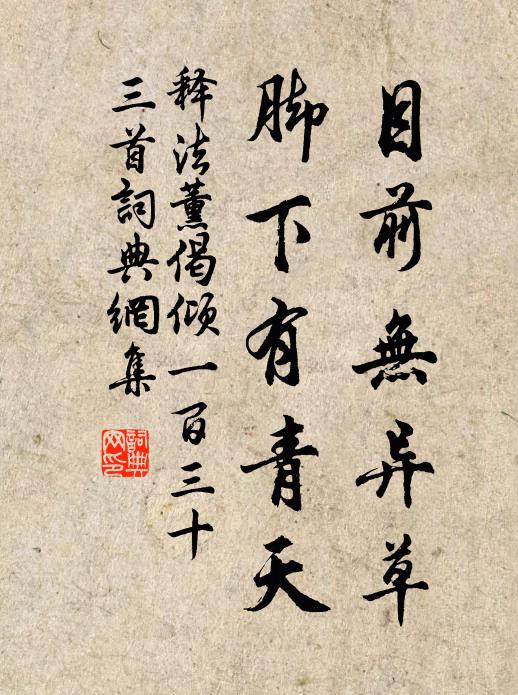 目前無异草
脚下有青天
释法薰偈倾一百三十
三首詞典網集
詞典網印